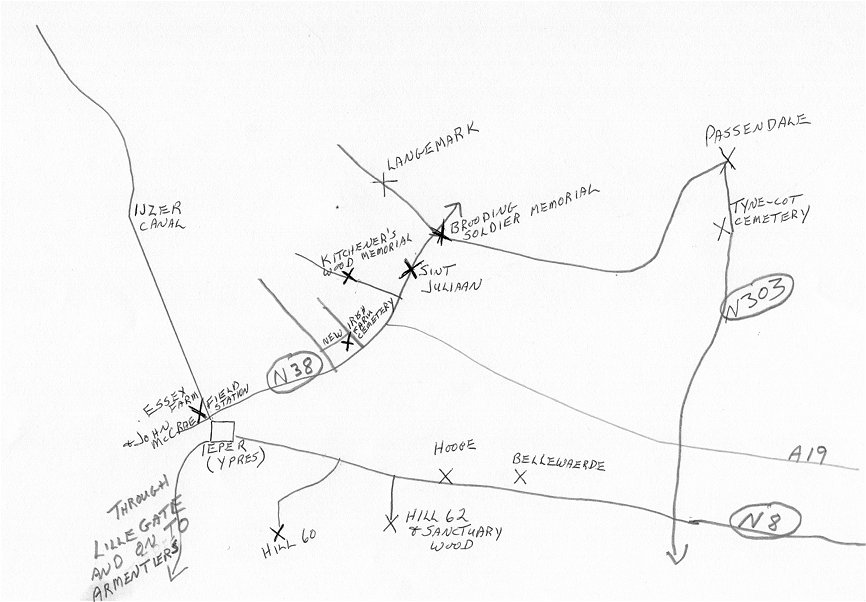 PASSENDALE
LANGEMARK
TYNE-COT
CEMETERY
IJZER
CANAL
BROODING
SOLDIER MEMORIAL
KITCHENER'S
WOOD MEMORIAL
SINT
JULIAAN
N303
NEW IRISH
FARM
CEMETERY
N38
ESSEX
FARM
& JOHN
McCRAE
FIELD
STATION
IEPER
(YPRES)
HOOGE
BELLEWAERDE
A19
THROUGH
LILLE GATE
AND ON TO
ARMENTIERS
HILL 60
HILL 62
& SANCTUARY
WOOD
N8